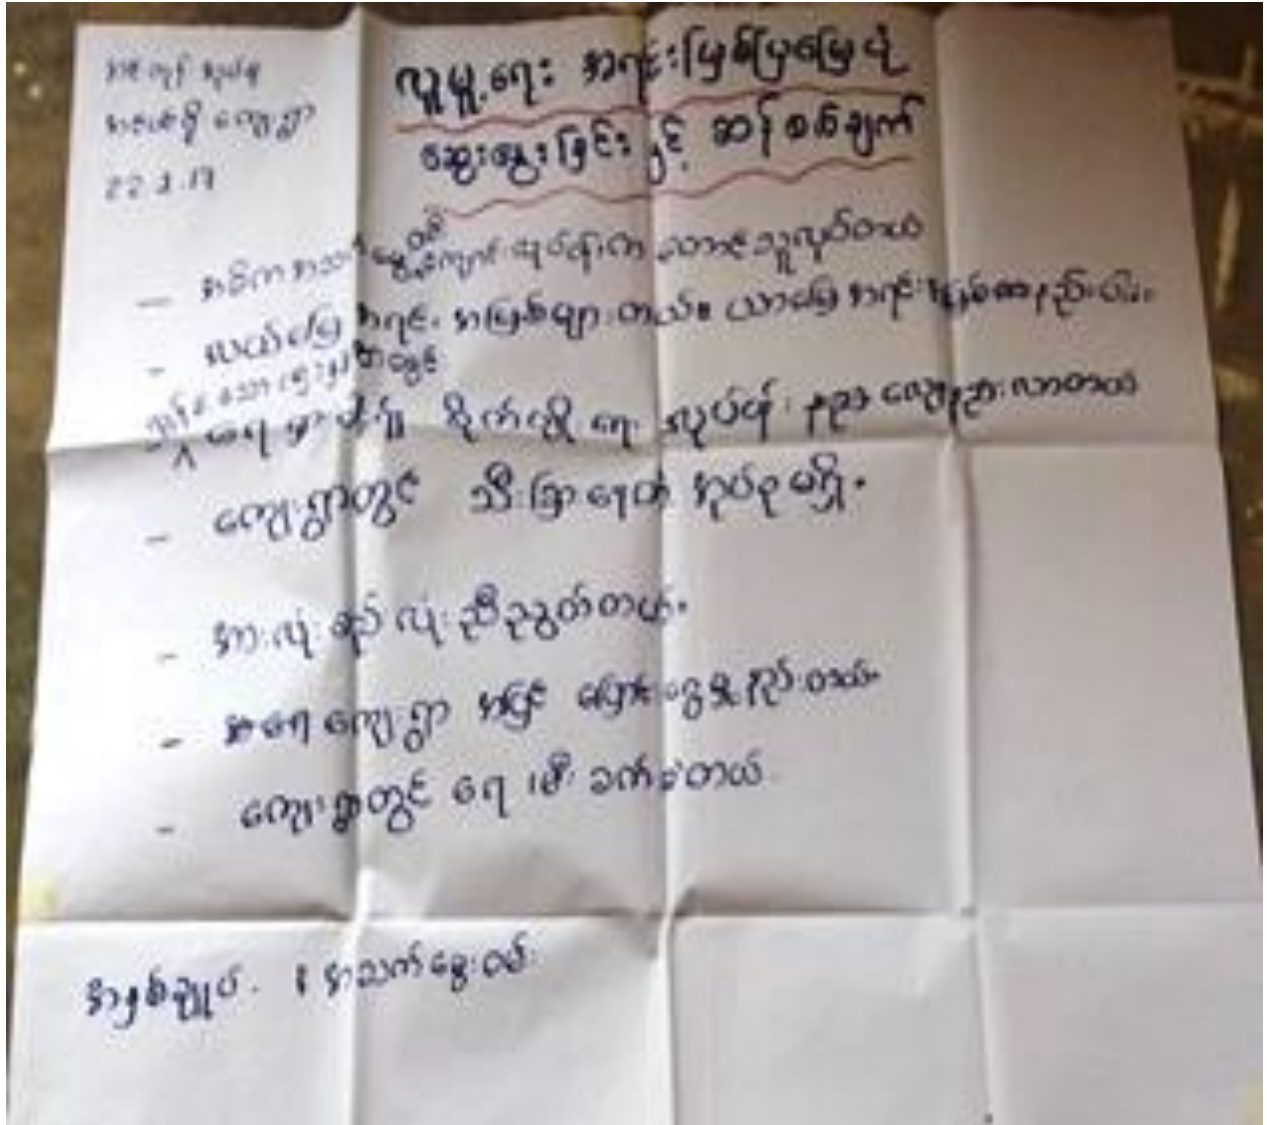 22.2.17
လူမှုရေး အရင်းမြစ်ပြမြေပုံ
ဆွေးနွေးခြင်းနှင့် ဆန်းစစ်ချက်
- အဓိကအသက်မွေးဝမ်းကျောင်းလုပ်ငန်းက တောင်သူလုပ်တယ်
- လယ်မြေ အရင်းအမြစ်များတယ်။ ယာမြေ အရင်းအမြစ်နည်းပါး
စိုက်ပျိုးရေး လုပ်ငန်း လျော့နည်းလာတယ်
- ကျေးရွာတွင် သီးခြားနေတဲ့ အုပ်စုမရှိ။
- အားလုံး စည်းလုံးညီညွတ်တယ်။
- ကျေးရွာ အပြင် ပြောင်းရွှေ့မှုနည်းတယ်။
- ကျေးရွာတွင် ရေ၊ မီး ခက်ခဲတယ်
အနှစ်ချုပ်။ ။ အသက်မွေးဝမ်း